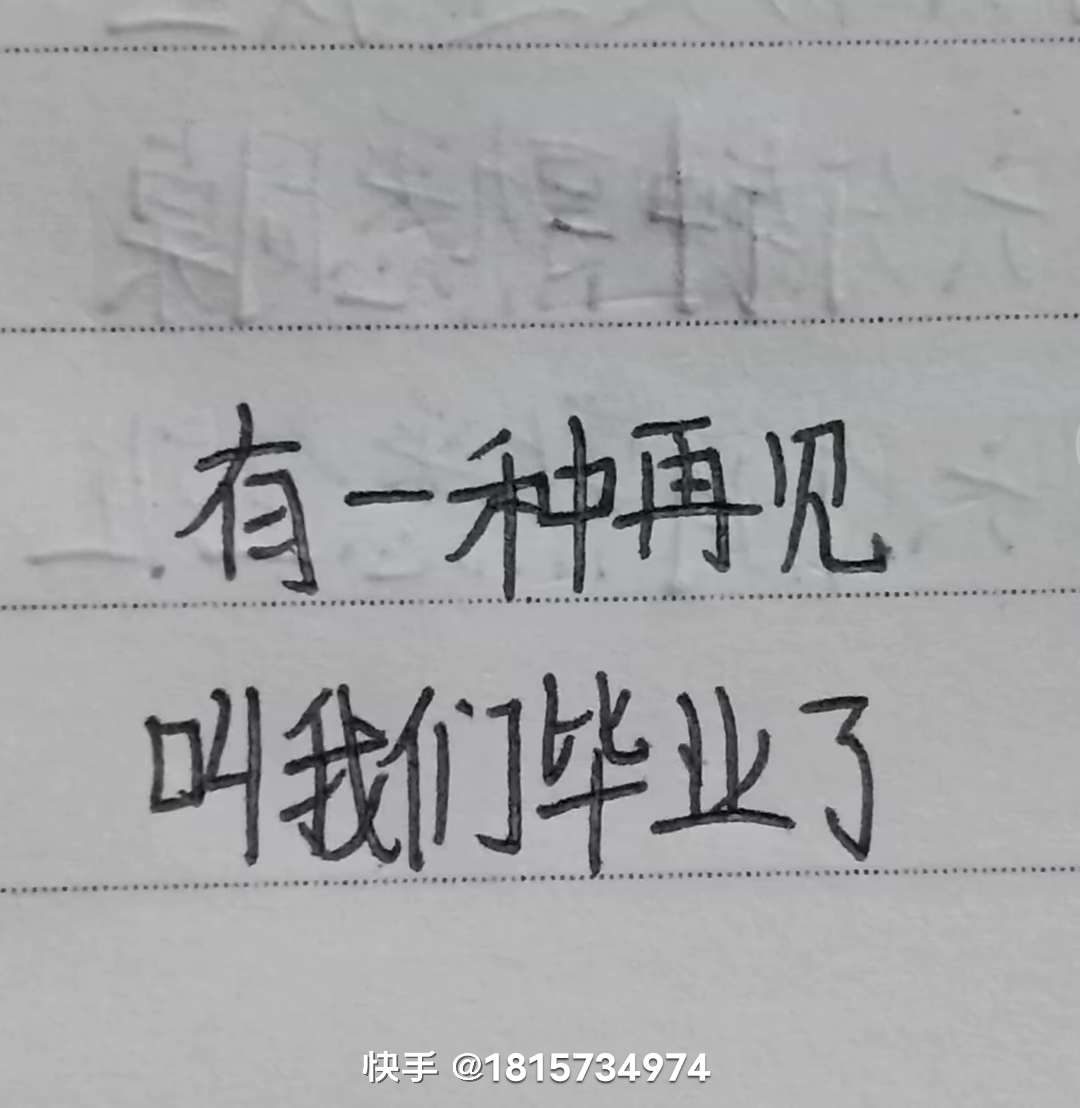 有一种再见
叫我们毕业了
快手 @1815734974